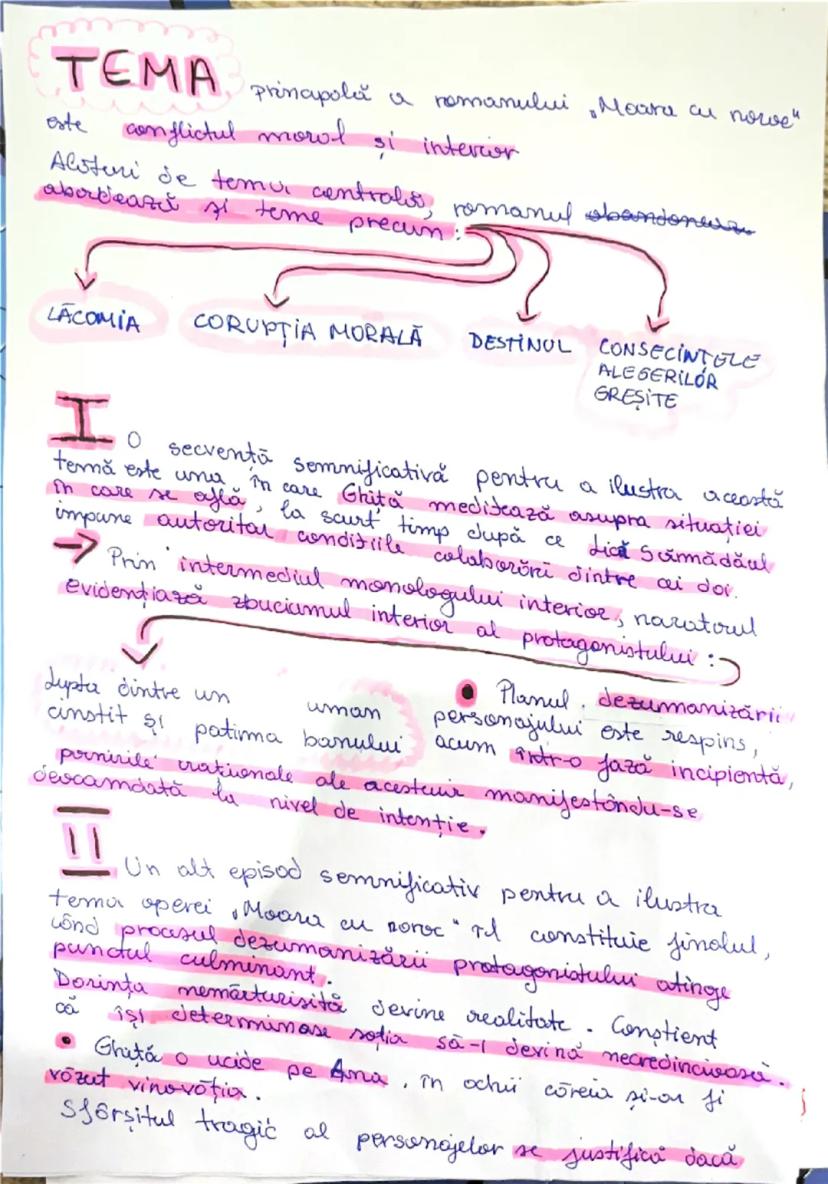 TEMA principală a romanului „Moara cu noroc"
este conflictul moral și interior
Alături de tema centrală, romanul abandonează
abordează și teme precum:
LĂCOMIA CORUPȚIA MORALĂ DESTINUL CONSECINȚELE
ALEGERILOR
GREȘITE
I O secvență semnificativă pentru a ilustra această
temă este una în care Ghiță meditează asupra situației
în care se află, la scurt timp după ce Lică Sămădăul
impune autoritar condițiile colaborării dintre cei doi.
→ Prin intermediul monologului interior, naratorul
evidențiază zbuciumul interior al protagonistului:
Lupta dintre un uman
cinstit și patima banului
• Planul dezumanizării
personajului este respins,
acum într-o fază incipientă,
pornirile iraționale ale acestuia manifestându-se
deocamdată la nivel de intenție.
II Un alt episod semnificativ pentru a ilustra
tema operei „Moara cu noroc" îl constituie finalul,
când procesul dezumanizării protagonistului atinge
punctul culminant.
Dorința nemărturisită devine realitate. Conștient
că își determinase soția să-i devină necredincioasă.
• Ghiță o ucide pe Ana, în ochii căreia și-ar fi
văzut vinovăția.
Sfârșitul tragic al personajelor se justifică dacă